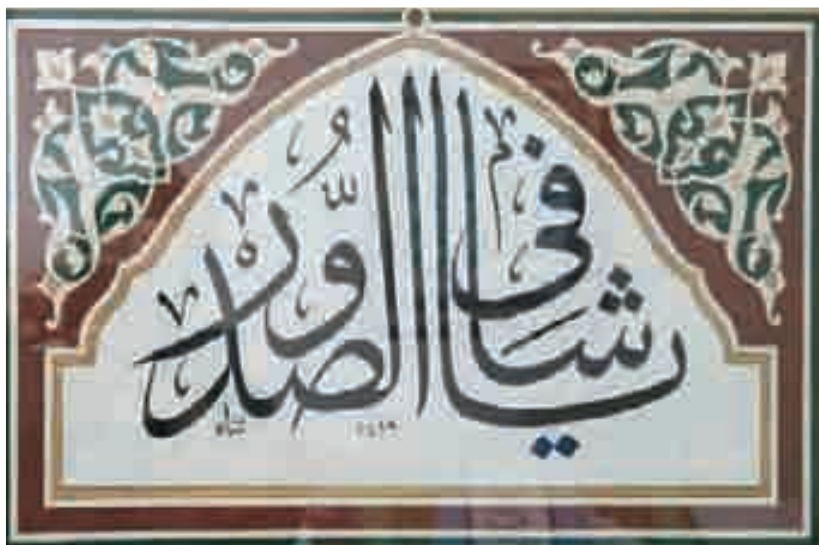 يا شافي الصُّدُور
١٤١٩